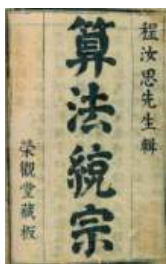 程汝思先生輯
算法統宗
染觀堂藏板